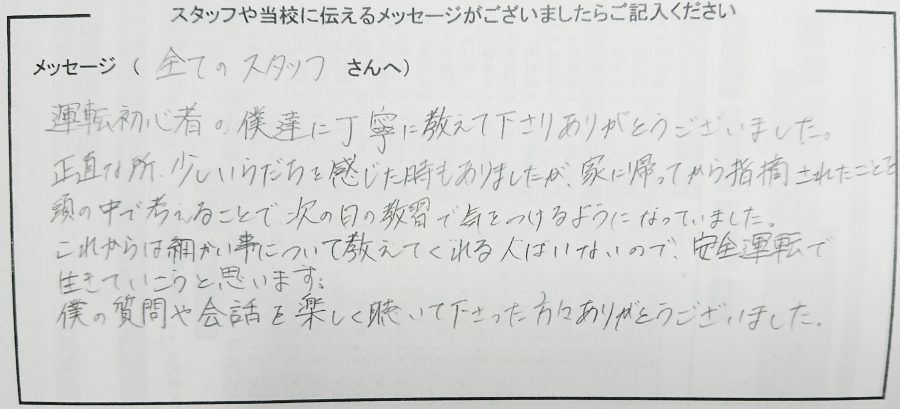 スタッフや当校に伝えるメッセージがございましたらご記入ください
メッセージ ( 全ての スタッフ さんへ)
運転初心者の僕達に丁寧に教えて下さりありがとうございました。
正直な所、少しいらだちを感じた時もありましたが、家に帰ってから指摘されたことを
頭の中で考えることで次の日の教習で気をつけるようになっていました。
これからは細かい事について教えてくれる人はいないので、安全運転で
生きていこうと思います。
僕の質問や会話を楽しく聴いて下さった方々ありがとうございました。